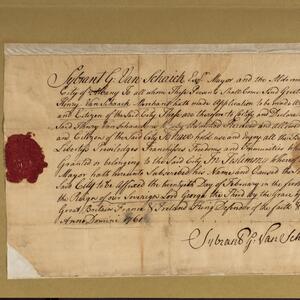 Sybrant G. Van Schaick Esqr. Mayor and the Alderm
City of Albany To all whom These Presents Shall Come Send Greet
Henry Van Schaick Merchant hath made Application to be made
and Citizen of the Said City These are therefore to
Said Henry Van Schaick
and Citizen of the Said City To Have hold use and enjoy all the
Liberties Priviledges Franchises Freedoms and Immunities
Granted or belonging to the Said City In Testimony whereof
Mayor hath hereunto Subscribed his Name and Caused the
Said City to be Affixed the twentyeth Day of February in the first
the Reign of our Sovereign Lord George the Third By the Grace
Great Britain France & Ireland King Defender of the faith &
Anno Domini 1761
Sybrant G. Van Sch